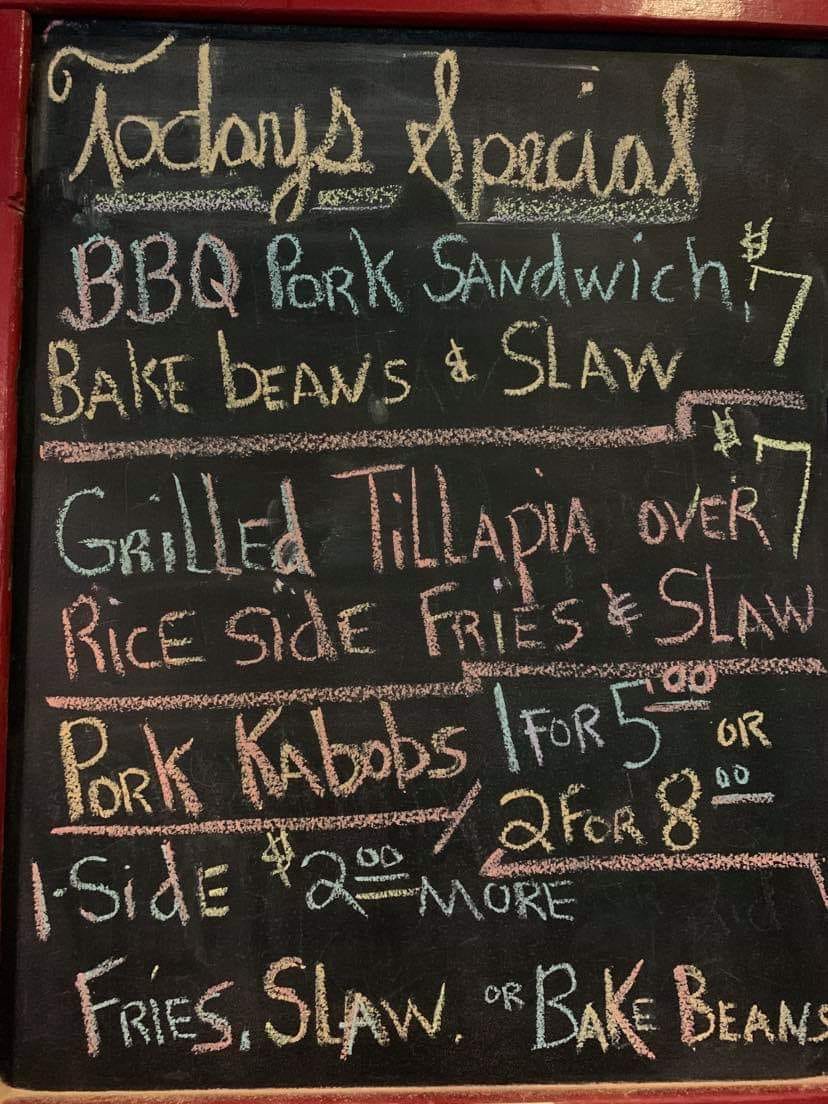 Todays Special
BBQ Pork Sandwich, $7
Bake beans & Slaw
Grilled Tillapia over $7
Rice Side Fries & Slaw
Pork Kabobs 1 For 5.00 or
2 For 8.00
1-Side $2.00 More
Fries, Slaw. or Bake Beans